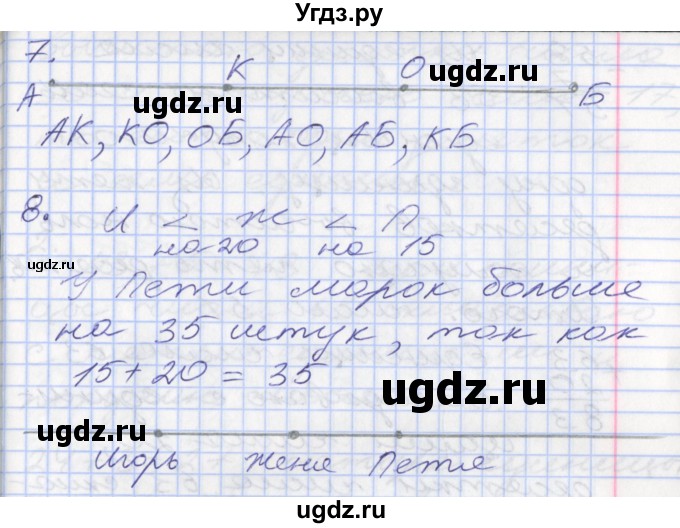 Угдз.ру
7.
А К О Б
АК, КО, ОБ, АО, АБ, КБ
8. И < Ж < П
на 20 на 15
У Пети марок больше
на 35 штук, так как
15 + 20 = 35
Игорь Женя Петя
ugdz.ru
ugdz.ru
ugdz.ru
ugdz.ru
ugdz.ru
ugdz.ru
ugdz.ru